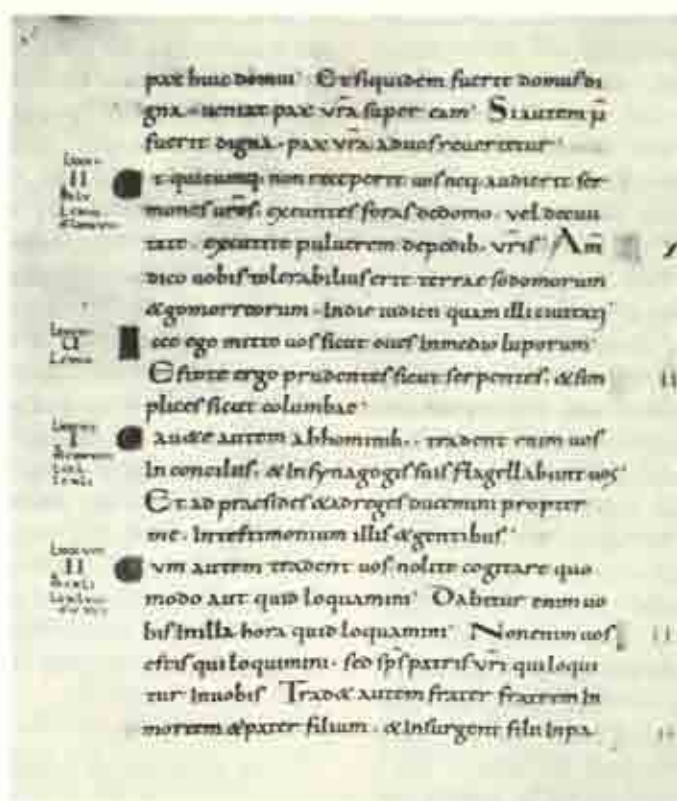 pax huic domui. Et siquidem fuerit domus di
gna. ueniat pax vr̄a super eam. Si autem n̄
fuerit digna. pax vr̄a ad uos reuertetur.
Et quicumq; non receperit uos neq; audierit ser
mones ur̄os. exeuntes foras dedomo. vel deciui
tate. excutite puluerem depedib; vr̄is. Am̄
dico uobis tolerabilius erit terrae sodomorum
& gomorreorum. Indie iudicii quam illi ciuitati
Ecce ego mitto uos sicut oues Inmedio luporum
Estote ergo prudentes sicut serpentes. & sim
plices sicut columbae
Cau&e autem abhominib;. tradent enim uos
In conciliis. & In synagogis suis flagellabunt uos
Et ad praesides & ad reges ducemini propter
me. In testimonium illis & gentibus
Cum autem tradent uos. nolite cogitare quo
modo aut quid loquamini. Dabitur enim uo
bis Inilla hora quid loquamini. Non enim uos
estis qui loquimini. sed sp̄s patris vr̄i qui loqui
tur Inuobis Trad& autem frater fratrem In
mortem & pater filium. & Insurgent filii Inpa